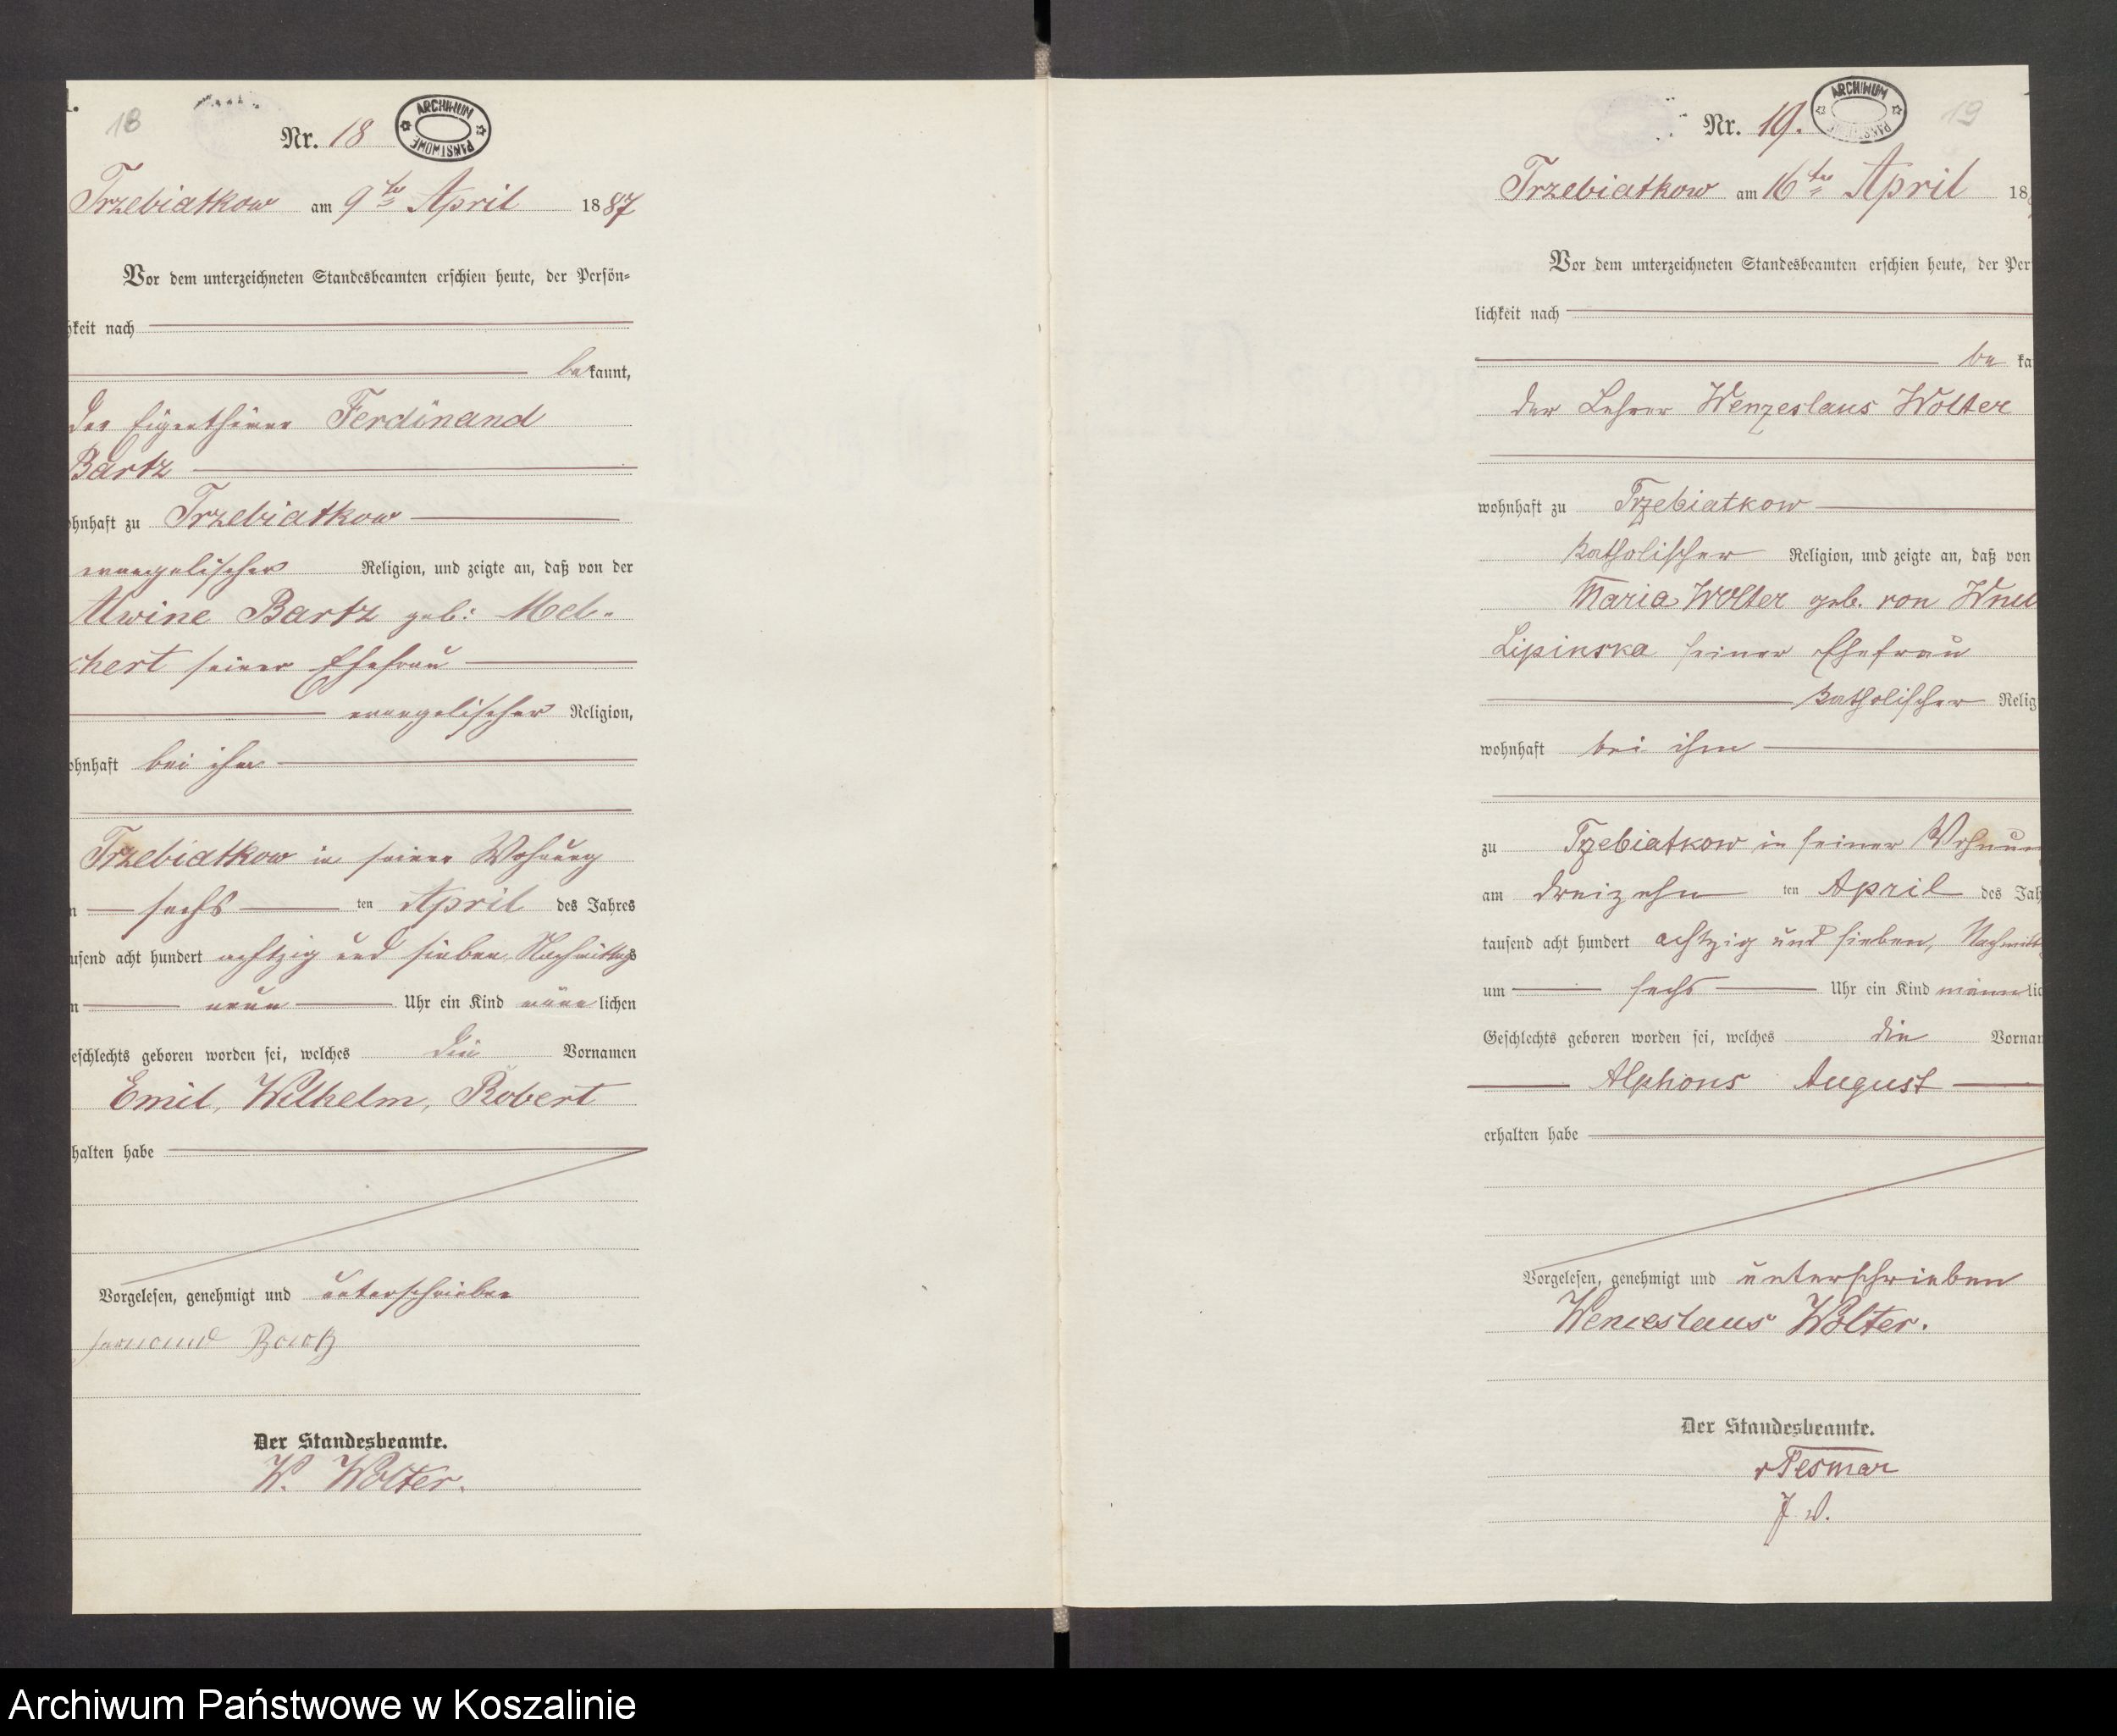 18
Nr. 18
ARCHIWUM PAŃSTWOWE
Trzebiatkow am 9ten April 1887
Vor dem unterzeichneten Standesbeamten erschien heute, der Persön-
hkeit nach
bekannt,
der Eigenthümer Ferdinand
Bartz
ohnhaft zu Trzebiatkow
evangelischer Religion, und zeigte an, daß von der
Alwine Bartz geb: Mel-
chert seiner Ehefrau
evangelischer Religion,
ohnhaft bei ihm
Trzebiatkow in seiner Wohnung
sechs ten April des Jahres
usend acht hundert achtzig und sieben Nachmittags
neun Uhr ein Kind männlichen
eschlechts geboren worden sei, welches die Vornamen
Emil, Wilhelm, Robert
halten habe
Vorgelesen, genehmigt und unterschrieben
Bartz
Der Standesbeamte.
W. Wolter.
19
Nr. 19.
ARCHIWUM PAŃSTWOWE
Trzebiatkow am 16ten April 18
Vor dem unterzeichneten Standesbeamten erschien heute, der Per
lichkeit nach
be ka
der Lehrer Wenzeslaus Wolter
wohnhaft zu Trzebiatkow
katholischer Religion, und zeigte an, daß von
Maria Wolter geb. von Wnu
Lipinska seiner Ehefrau
katholischer Relig
wohnhaft bei ihm
zu Trzebiatkow in seiner Wohnun
am dreizehn ten April des Jah
tausend acht hundert achtzig und sieben, Nachmitt
um sechs Uhr ein Kind männlic
Geschlechts geboren worden sei, welches die Vornam
Alphons August
erhalten habe
Vorgelesen, genehmigt und unterschrieben
Wenceslaus Wolter.
Der Standesbeamte.
v Tesmar
Archiwum Państwowe w Koszalinie